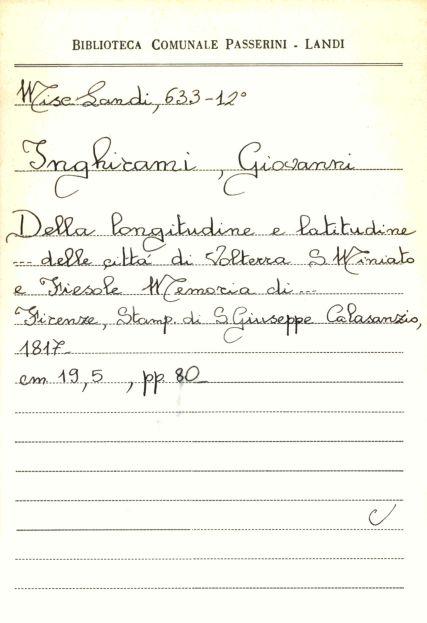 BIBLIOTECA COMUNALE PASSERINI - LANDI
Misc Landi, 633-12°
Inghirami, Giovanni
Della longitudine e latitudine
--- delle città di Volterra S Miniato
e Fiesole Memoria di ...
Firenze, Stamp. di S. Giuseppe Calasanzio,
1817-
cm 19,5 , pp 80_